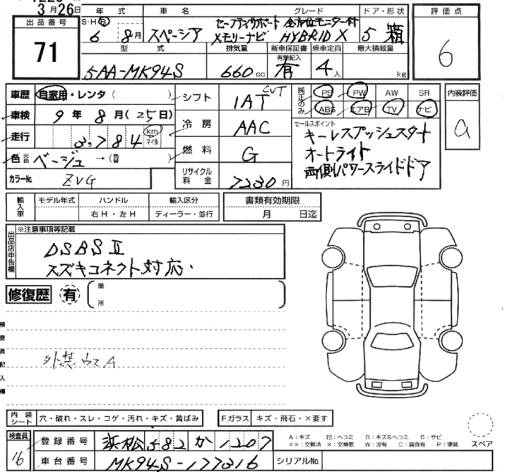 3月26日
出品番号 年式 車名 グレード ドア・形状 評価点
71
S・H・R 6年8月 スペーシア セーフティサポート 全方位モニター付 メモリーナビ HYBRID X 5 箱
6
型式 排気量 新車保証書 有要記入 乗車定員 最大積載量
5AA-MK94S 660cc 有 4人 kg
車歴 自家用・レンタ( )
シフト IAT CVT
純正のみ PS PW AW SR
ABS エアB TV ナビ
内装評価
a
車検 9年8月(25日)
冷房 AAC
セールスポイント
キーレスプッシュスタート
オートライト
両側パワースライドドア
走行 3,784 km マイル
燃料 G
色 ベージュ →(
カラーNo. ZVG
リサイクル料金 7230円
輸入車 モデル年式 ハンドル 輸入区分 書類有効期限
右H・左H ディーラー・並行 月 日迄
出品店申告欄 ※注意事項等記載
DSBS II
スズキコネクト対応
修復歴 有 箇所
検査員記入欄
外装 ウスA
内装シート 穴・破れ・スレ・コゲ・汚れ・キズ・黄ばみ
Fガラス キズ・飛石・×要す
検査員 16
登録番号 浜松582か1207
車台番号 MK94S-177316 シリアルNo.
A:キズ B:キズ&ヘコミ S:サビ
XX:交換済 X:要交換 W:波有 C:腐食有 P:塗装
スペア